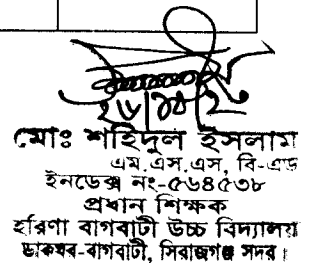 মোঃ শহিদুল ইসলাম
এম.এস.এস, বি-এড
ইনডেক্স নং-৫৬৪৫৩৮
প্রধান শিক্ষক
হরিণা বাগবাটী উচ্চ বিদ্যালয়
ডাকঘর-বাগবাটী, সিরাজগঞ্জ সদর।